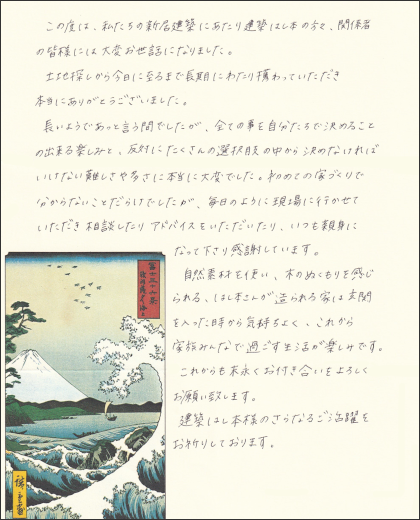 この度は、私たちの新居建築にあたり建築はし本の方々、関係者
の皆様には大変お世話になりました。
土地探しから今日に至るまで長期にわたり携わっていただき
本当にありがとうございました。
長いようであっと言う間でしたが、全ての事を自分たちで決めること
の出来る楽しみと、反対にたくさんの選択肢の中から決めなければ
いけない難しさや多さに本当に大変でした。初めての家づくりで
分からないことだらけでしたが、毎日のように現場に行かせて
いただき相談したりアドバイスをいただいたり、いつも親身に
なって下さり感謝しています。
自然素材を使い、木のぬくもりを感じ
られる、はし本さんが造られる家は玄関
を入った時から気持ちよく、これから
家族みんなで過ごす生活が楽しみです。
これからも末永くお付き合いをよろしく
お願い致します。
建築はし本様のさらなるご活躍を
お祈りしております。
冨士三十六景
廣重画